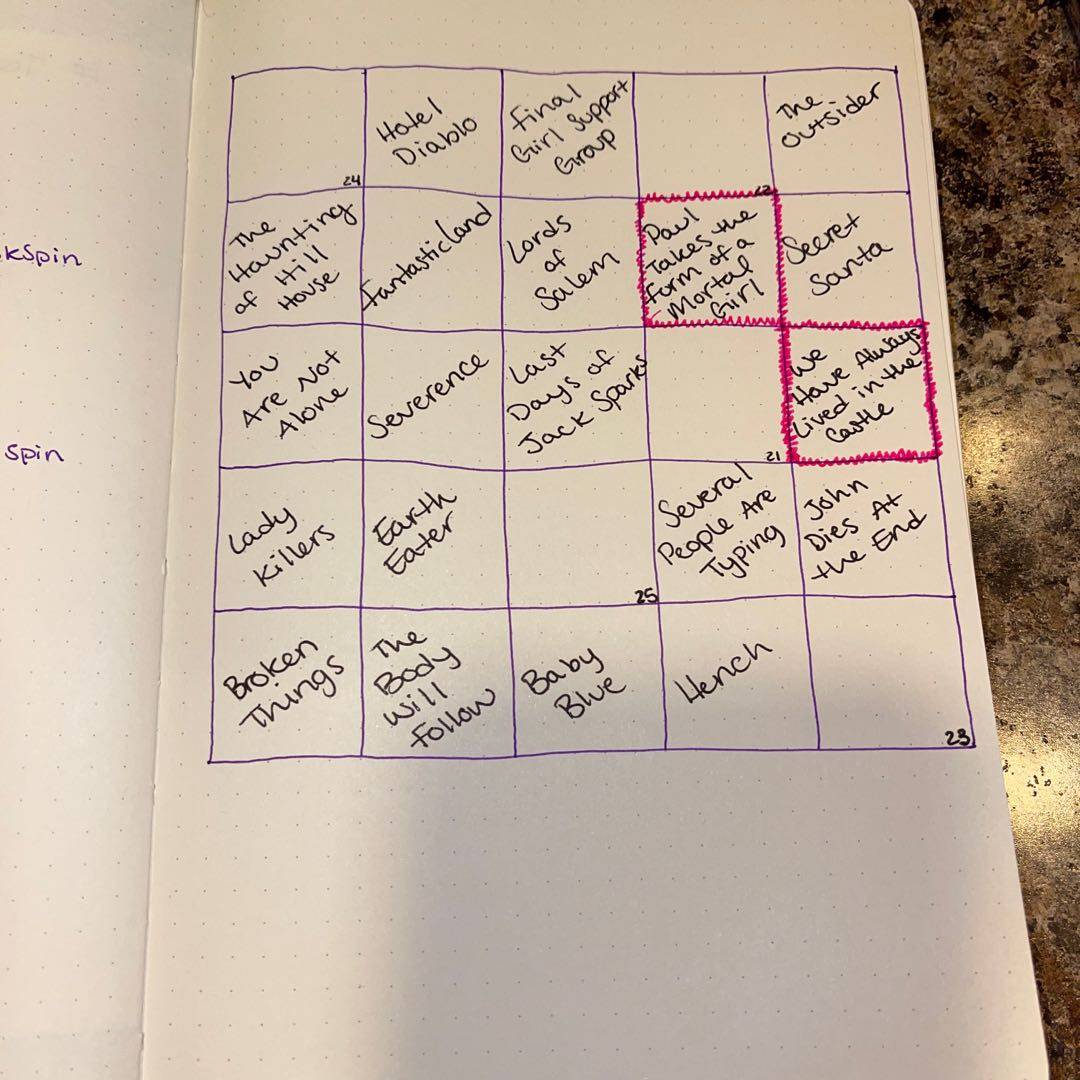 kspin
spin
24
Hotel
Diablo
Final
Girl Support
Group
22
The
Outsider
The
Haunting
of Hill
House
Fantasticland
Lords
of
Salem
Paul
Takes the
Form of a
Mortal
Girl
Secret
Santa
You
Are Not
Alone
Severence
Last
Days of
Jack Sparks
21
We
Have Always
Lived in the
Castle
Lady
Killers
Earth
Eater
25
Several
People Are
Typing
John
Dies At
the End
Broken
Things
The
Body
Will
Follow
Baby
Blue
Hench
23